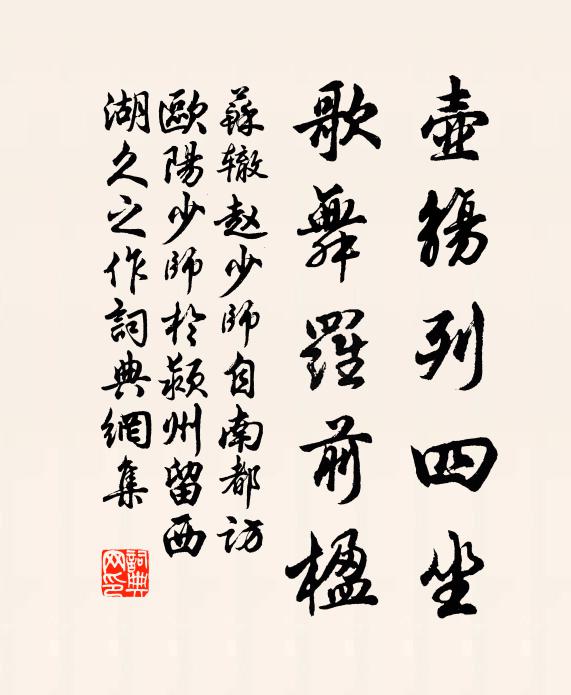 壺觴列四坐
歌舞羅前楹
蘇辙赵少師自南都访
歐陽少師於颍州留西
湖久之作詞典網集
詞典网印